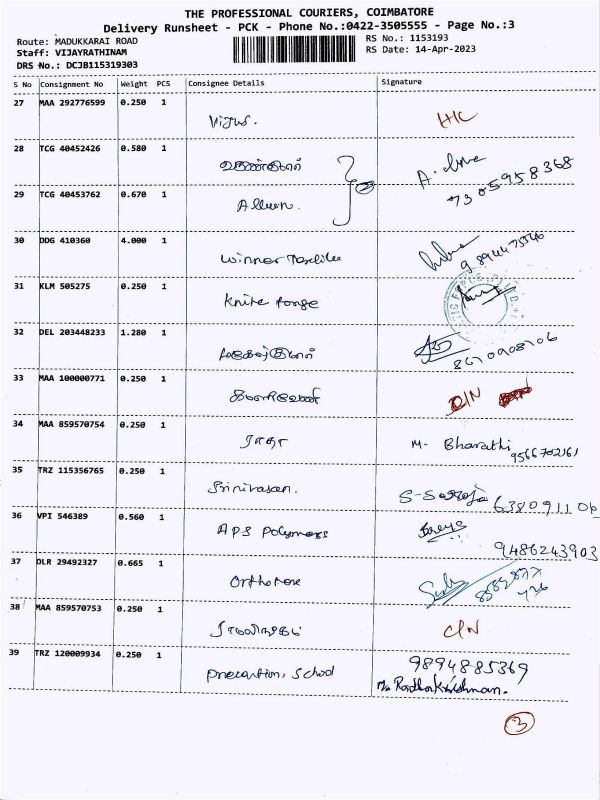 THE PROFESSIONAL COURIERS, COIMBATORE
Delivery Runsheet - PCK - Phone No.:0422-3505555 - Page No.:3
Route: MADUKKARAI ROAD RS No.: 1153193
Staff: VIJAYRATHINAM RS Date: 14-Apr-2023
DRS No.: DCJB115319303
S No Consignment No Weight PCS Consignee Details Signature
27 MAA 292776599 0.250 1
H/C
28 TCG 40452426 0.580 1
A.
7305958368
29 TCG 40453762 0.670 1
30 DDG 410360 4.000 1
winner
31 KLM 505275 0.250 1
Knite forge
32 DEL 203448233 1.280 1
8670908706
33 MAA 100000771 0.250 1
D/N
34 MAA 859570754 0.250 1
ராதா M. Bharathi
9566702161
35 TRZ 115356765 0.250 1
Srinivasan. S-Saroja
36 VPI 546389 0.560 1
APS Polymers
9486243903
37 DLR 29492327 0.665 1
38 MAA 859570753 0.250 1
C/N
39 TRZ 120009934 0.250 1
School 9894885369
Radhakrishnan.
3